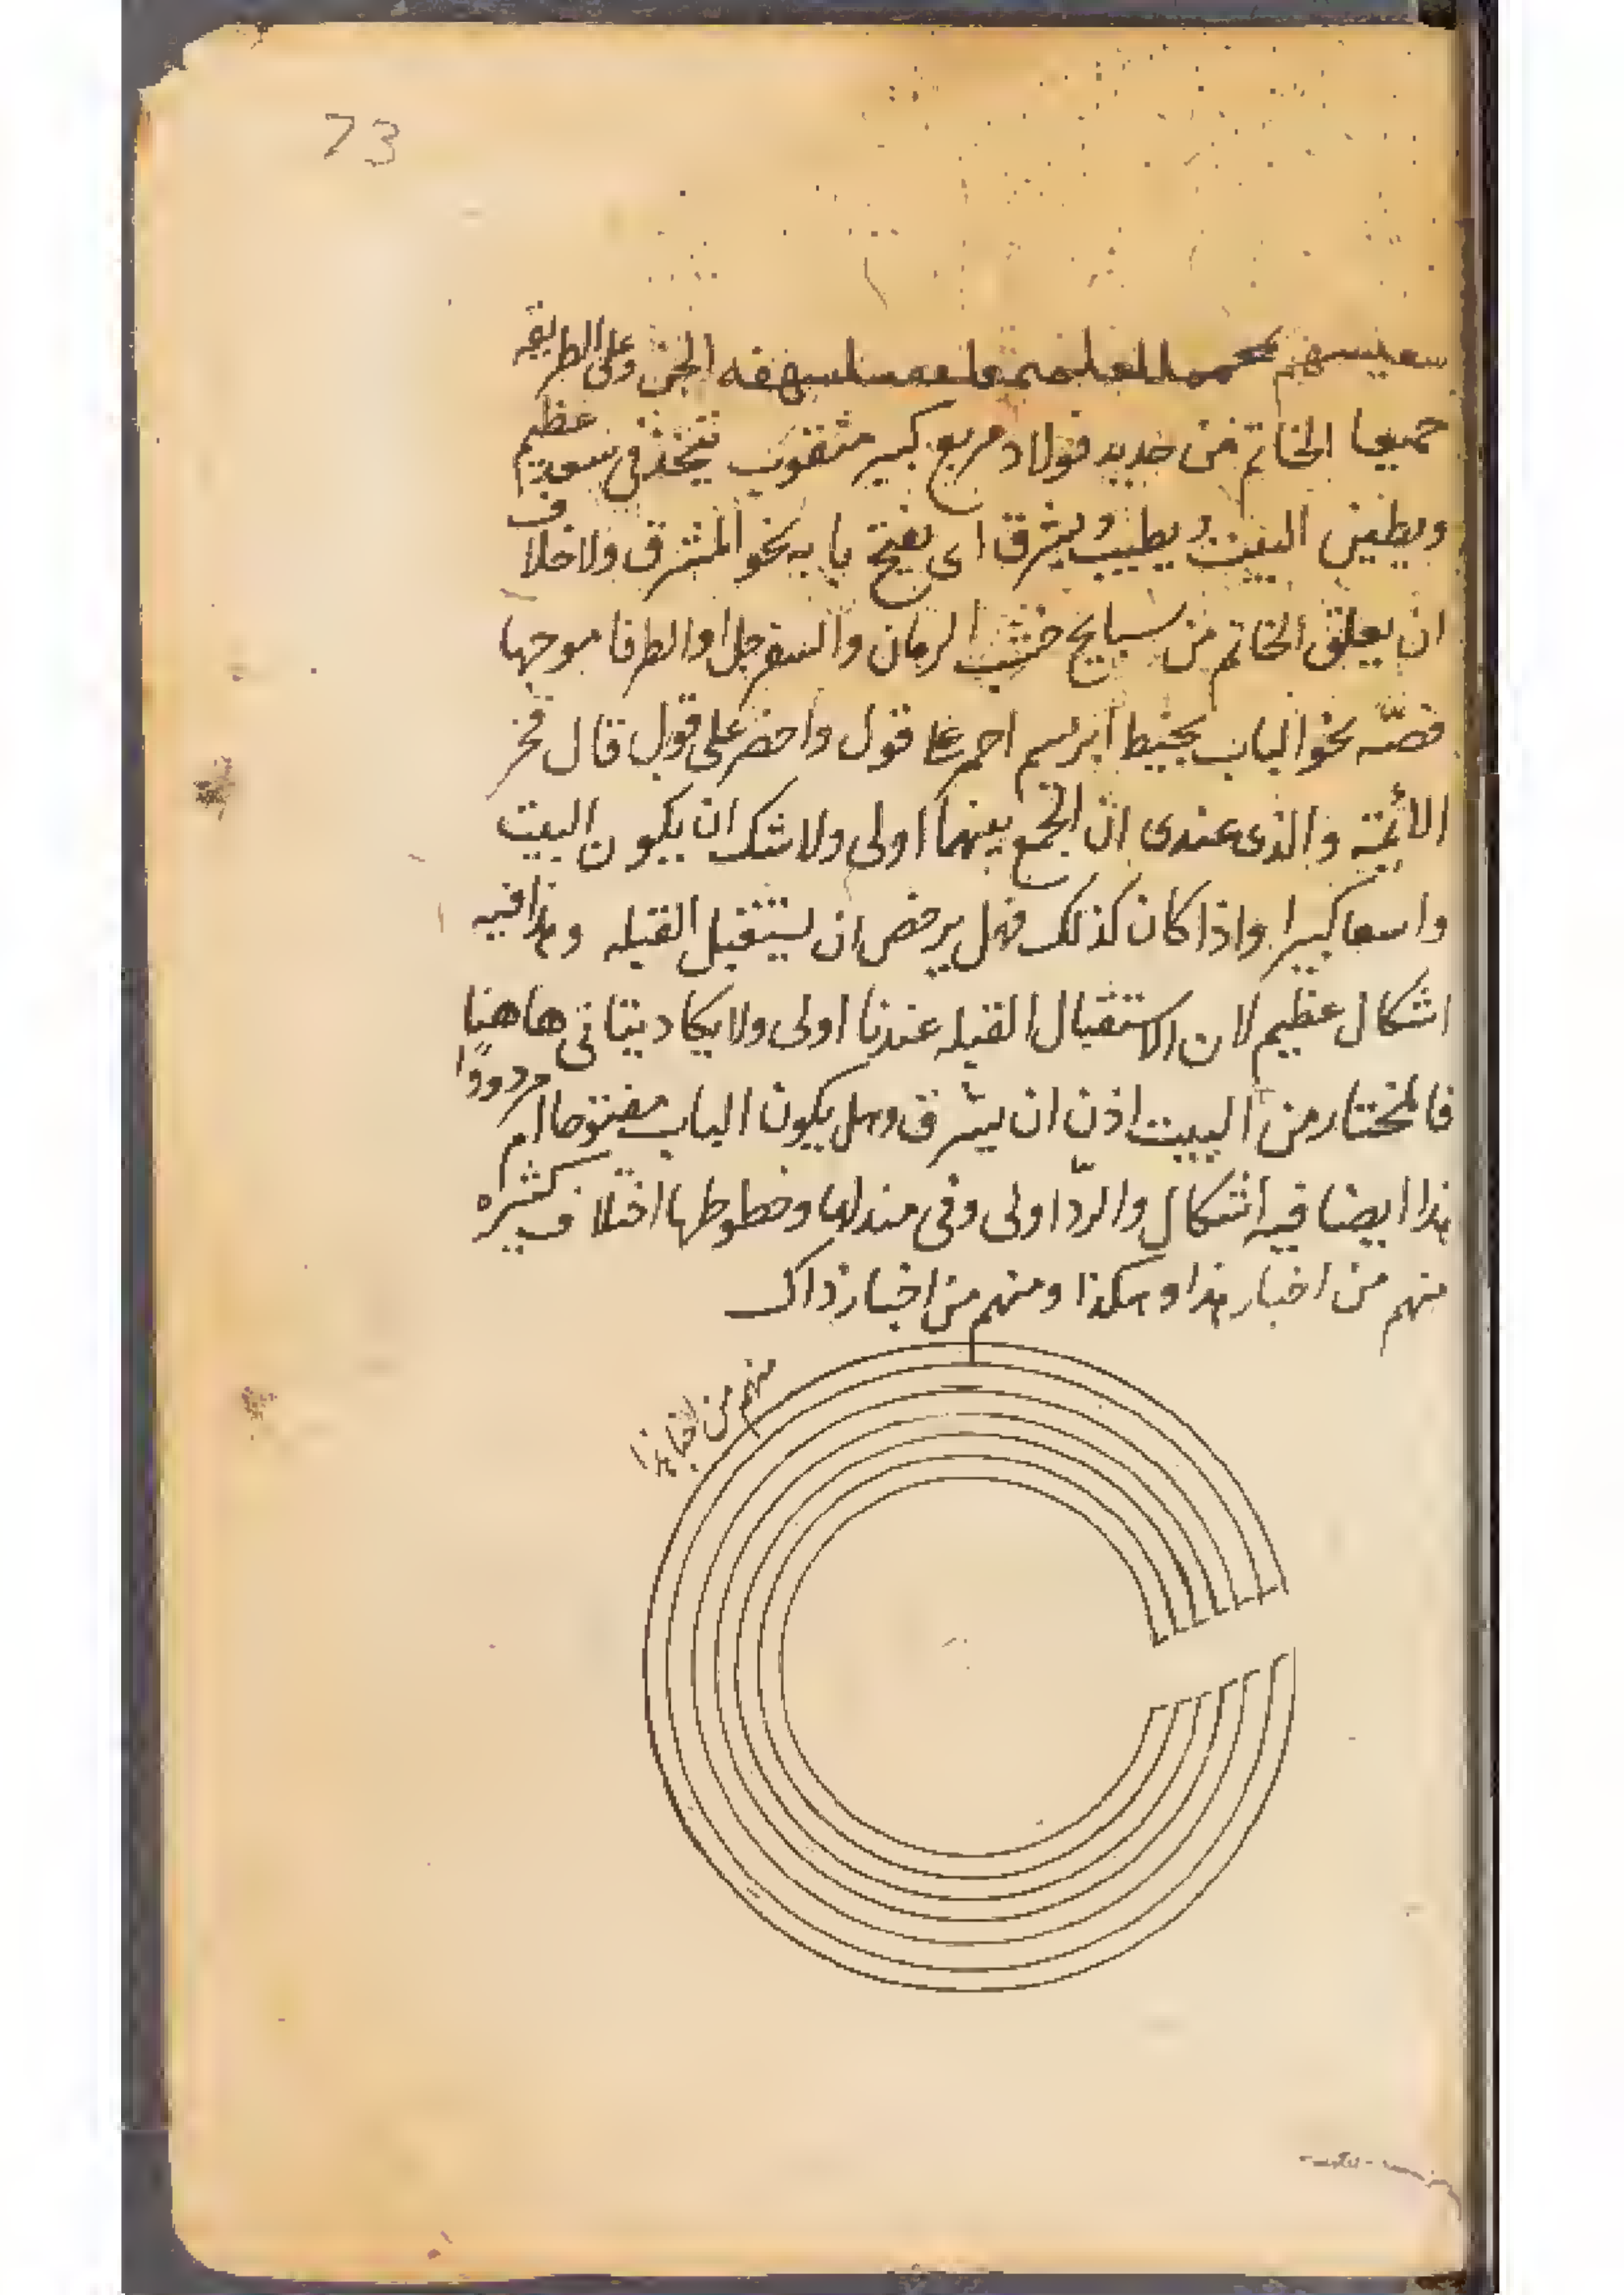 73
الجن وعلى الطريقه
جميعا الخاتم من حديد فولاد مربع كبير مثقوب يتخذ في سعد عظيم
ويطين البيت ويطيب ويشرق اى يفتح بابه نحو المشرق ولا خلاف
ان يعلق الخاتم من خشب الرمان والسفرجل او الطرفا موجها
فصّه نحو الباب بخيط ابريسم احمر على قول واخضر على قول قال فخر
الائمّة والذى عندى انّ الجمع بينهما اولى ولا شك ان يكون البيت
واسعا كبيرا واذا كان كذلك فهل يرخص ان يستقبل القبله وهذا فيه
اشكال عظيم لان الاستقبال القبله عندنا اولى ولا يكاد يتاتى هاهنا
فالمختار من البيت اذن ان يشرق وهل يكون الباب مفتوحا ام مردودًا
هذا ايضا فيه اشكال والردّ اولى وفى مندلها وخطوطها اختلاف كثيره
منهم من اختار هذا وهكذا ومنهم من اختار ذاك
منهم من اختار هذا